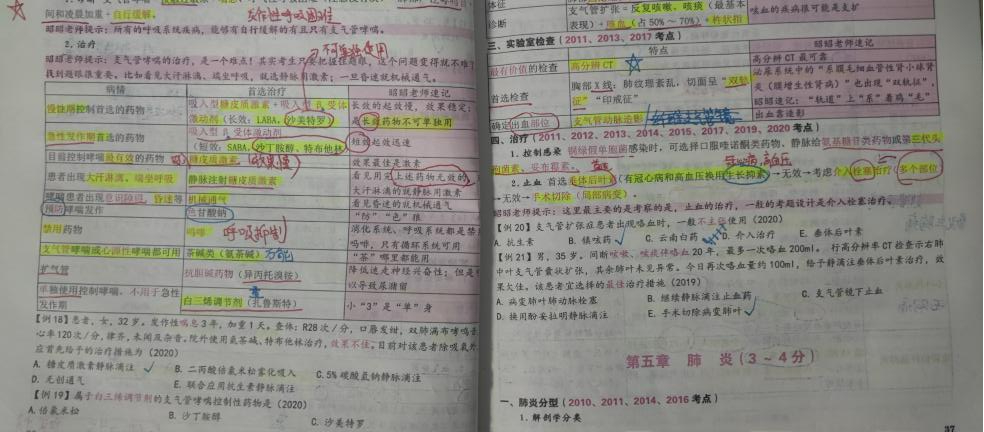 间和凌晨加重+自行缓解。
发作性呼吸困难
昭昭老师提示：所有的呼吸系统疾病，能够有自行缓解的有且只有支气管哮喘。
2. 治疗
不可单独使用
昭昭老师提示：支气管哮喘的治疗，是一个难点！其实考生只要把握住题眼，这个问题变得就不难了
找到题眼很重要，比如看见大汗淋漓、端坐呼吸，就选静脉用激素；一旦昏迷就机械通气。
病情 首选治疗 昭昭老师速记
慢性期控制首选的药物 吸入型糖皮质激素+吸入型β₂受体激动剂（长效：LABA，沙美特罗） 长效的起效慢，效果稳定；是长效药物不可单用
急性发作期首选的药物 吸入型β₂受体激动剂（短效：SABA，沙丁胺醇、特布他林） 短效起效迅速
目前控制哮喘最有效的药物 糖皮质激素 效果最佳是激素
患者出现大汗淋漓、端坐呼吸 静脉注射糖皮质激素 看见用完上述药物无效的、大汗淋漓的就静脉用激素
哮喘患者出现意识障碍、昏迷等 机械通气 看见昏迷的就机械通气
预防哮喘发作 色甘酸钠 “防”“色”狼
禁用药物 吗啡 呼吸抑制 消化系统、呼吸系统都是禁
吗啡，只有循环系统可用
支气管哮喘或心源性哮喘都可用 茶碱类（氨茶碱） 万能 “茶”哪里都能用
扩气管 抗胆碱药物（异丙托溴铵） 降低迷走神经兴奋性；但是
以导致尿潴留
单独使用控制哮喘，不用于急性发作期 白三烯调节剂（扎鲁斯特） 小“3”是“单”身
【例18】患者，女，32岁。发作性喘息3年，加重1天。查体：R28次/分，口唇发绀，双肺满布哮鸣音
心率120次/分，律齐，未闻及杂音。院外使用氨茶碱、特布他林治疗，效果不佳。目前对该患者除吸氧外
应首先给予的治疗措施为（2020）
A. 糖皮质激素静脉滴注 B. 二丙酸倍氯米松雾化吸入 C. 5%碳酸氢钠静脉滴注
D. 无创通气 E. 联合应用抗生素静脉滴注
【例19】属于白三烯调节剂的支气管哮喘控制性药物是（2020）
A. 倍氯米松 B. 沙丁胺醇 C. 沙美特罗
体征
诊断 支气管扩张=反复咳嗽、咳痰（最基本
表现）+咯血（占50%～70%）+杵状指 咳血的疾病很可能是支扩
三、实验室检查（2011、2013、2017考点）
特点 昭昭老师速记
最有价值的检查 高分辨CT 高分辨CT最可靠
首选检查 胸部X线：肺纹理紊乱，切面呈“双轨征”“印戒征” 泌尿系统中的“系膜毛细血管性肾小球肾炎（膜增生性肾病）”也出现“双轨征”，昭昭速记：“轨道”上“系”着鸡“毛”
确定出血部位 支气管动脉造影 出血靠造影
四、治疗（2011、2012、2013、2014、2015、2017、2019、2020考点）
1. 控制感染 铜绿假单胞菌感染时，可选择口服喹诺酮类药物、静脉给氨基糖苷类药物或第三代头
孢菌素、妥布霉素。
2. 止血 首选垂体后叶素（有冠心病和高血压换用生长抑素）→无效→考虑介入栓塞治疗（多个部位
→无效→手术切除（局部病变）。
昭昭老师提示：这里最主要的是考察的是，止血的治疗，一般的考题设计是介入栓塞治疗。
【例20】支气管扩张症患者出现咯血时，一般不主张使用（2020）
A. 抗生素 B. 镇咳药 C. 云南白药 D. 介入治疗 E. 垂体后叶素
【例21】男，35岁。间断咳嗽、咳痰伴咯血20年，最多一次咯血200ml。行高分辨率CT检查示右肺
中叶支气管囊状扩张，其余肺叶未见异常。今日再次咯血量约100ml，给予静滴注垂体后叶素治疗，效
果欠佳。该患者宜选择的最佳治疗措施（2019）
A. 病变肺叶肺动脉栓塞 B. 继续静脉滴注止血药 C. 支气管镜下止血
D. 换用酚妥拉明静脉滴注 E. 手术切除病变肺叶
第五章 肺 炎（3～4分）
一、肺炎分型（2010、2011、2014、2016考点）
1. 解剖学分类
37